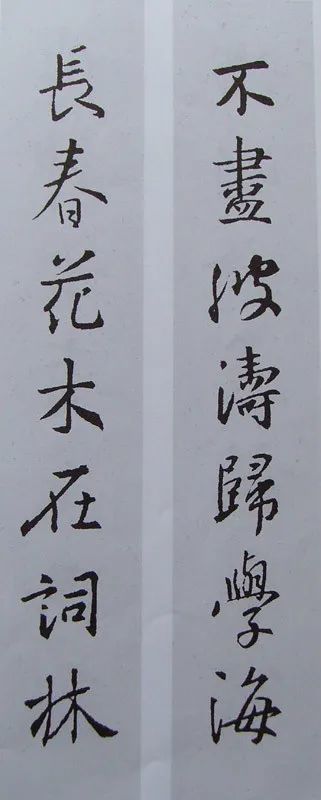 不盡波濤歸學海
長春花木在詞林